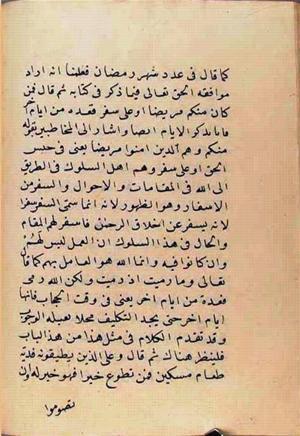 كما قال في عدد شهر رمضان فعلمنا انه اراد
موافقة الحق تعالى فيما ذكر في كتابه ثم قال فمن
كان منكم مريضا او على سفر فعدة من ايام اخر
فاتا بذكر الايام ايضا واشار الى المخاطبين بقوله
منكم وهم الذين امنوا مريضا يعنى في حبس
الحق او على سفر وهم اهل السلوك في الطريق
الى الله في المقامات والاحوال والسفر من
الاسفار وهو الظهور لانه انما سمى السفر سفرا
لانه يسفر عن اخلاق الرجال فاسفر لهم المقام
والحال في هذا السلوك ان العمل ليس لهم
وان كانوا فيه وانما الله هو العامل بهم كما قال
تعالى وما رميت اذ رميت ولكن الله رمى
فعدة من ايام اخر يعنى في وقت الحجاب فانها
ايام اخر حتى يجد التكليف محلا يقبله الوجوب
وقد تقدم الكلام في مثل هذا من هذا الباب
فلينظر هناك ثم قال وعلى الذين يطيقونه فدية
طعام مسكين فمن تطوع خيرا فهو خير له وان
تصوموا